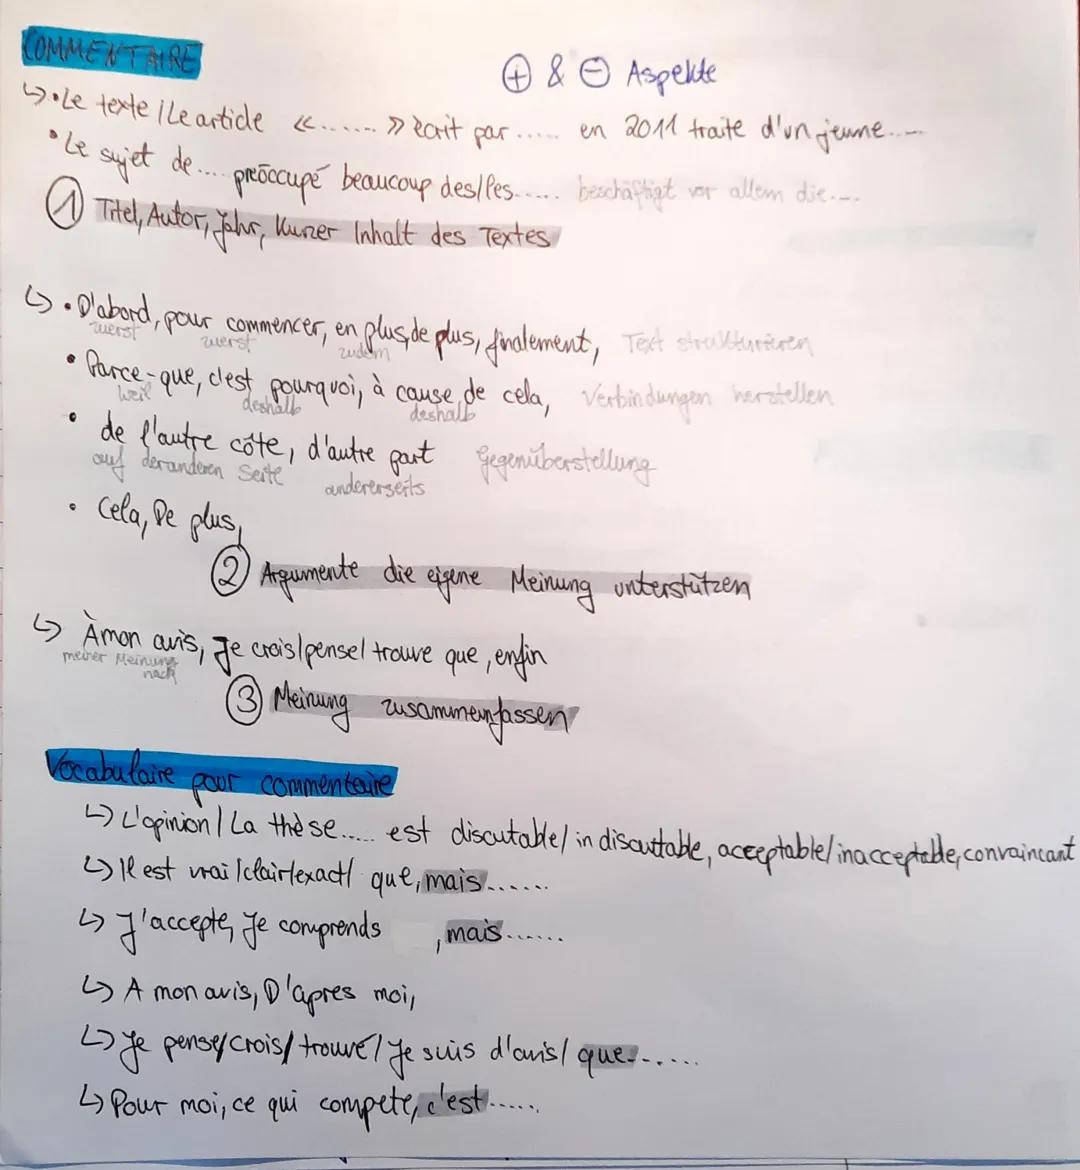 COMMENTAIRE
⊕ & ⊖ Aspekte
↳ • Le texte / Le article «......» écrit par ..... en 2011 traite d'un jeune.....
• Le sujet de.... préoccupé beaucoup des/les..... beschäftigt vor allem die....
① Titel, Autor, Jahr, Kurzer Inhalt des Textes
↳ • D'abord, pour commencer, en plus, de plus, finalement, Text strukturieren
zuerst zuerst zudem
• Parce-que, c'est pourquoi, à cause de cela, Verbindungen herstellen
weil deshalb deshalb
• de l'autre côte, d'autre part Gegenüberstellung
auf der anderen Seite andererseits
• Cela, De plus,
② Argumente die eigene Meinung unterstützen
↳ À mon avis, Je crois/pense/ trouve que, enfin
meiner Meinung nach
③ Meinung zusammenfassen
Vocabulaire pour commentaire
↳ L'opinion / La thèse..... est discutable/ indiscuttable, acceptable/inacceptable, convaincant
↳ Il est vrai/clair/exact/ que, mais......
↳ J'accepte, Je comprends , mais......
↳ A mon avis, D'apres moi,
↳ Je pense/crois/ trouve/ Je suis d'avis/ que......
↳ Pour moi, ce qui compete, c'est......